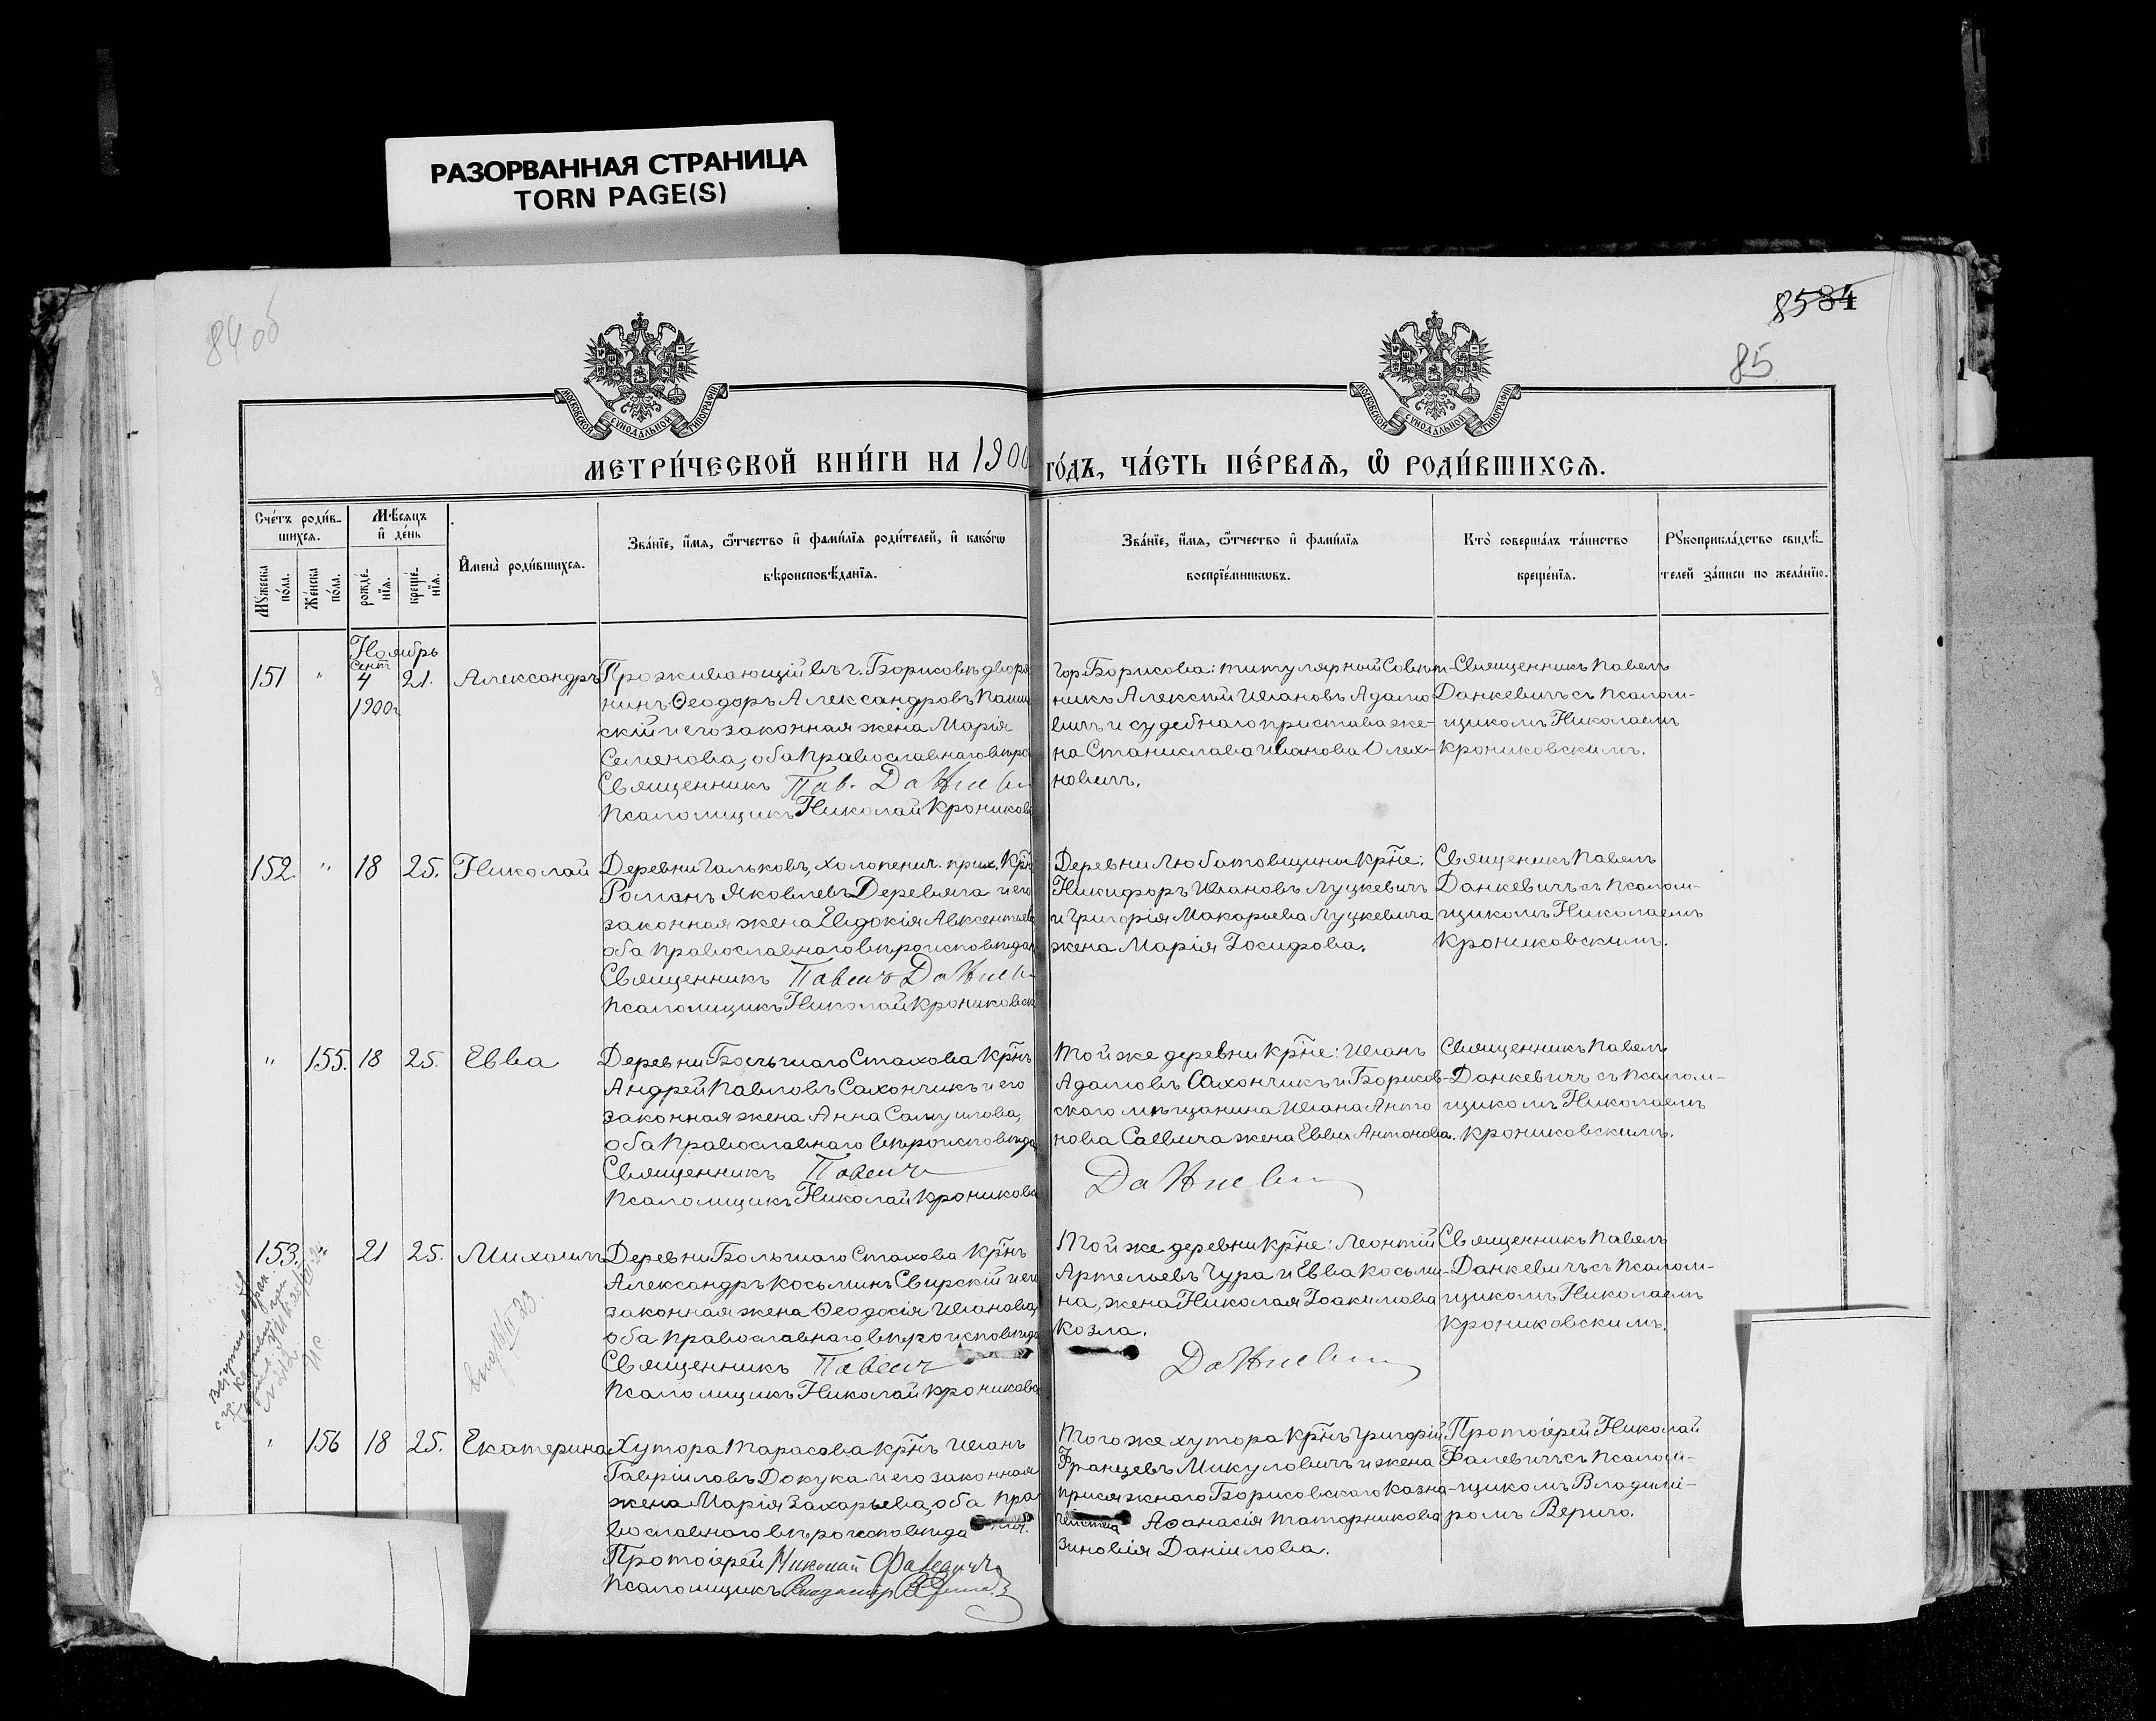 РАЗОРВАННАЯ СТРАНИЦА
TORN PAGE(S)
84 об
8584
85
МОСКОВСКОЙ СѴНОДАЛЬНОЙ ТИПОГРАФІИ
МОСКОВСКОЙ СѴНОДАЛЬНОЙ ТИПОГРАФІИ
МЕТРИ́ЧЕСКОЙ КНИ́ГИ НА 1900
ГО́ДЪ, ЧА́СТЬ ПЕ́РВАѦ, Ѡ҆ РОДИ́ВШИХСѦ.
Сче́тъ роди́в-
шихсѧ.
Мꙋ́жеска по́ла.
Же́нска по́ла.
Мѣ́сѧцъ
и҆ де́нь
рожде́-
нїѧ.
креще́-
нїѧ.
И҆мена̀ роди́вшихсѧ.
Зва́нїе, и҆́мѧ, ѻ҆́тчество и҆ фами́лїѧ роди́телей, и҆ како́гѡ
вѣроисповѣ́данїѧ.
Зва́нїе, и҆́мѧ, ѻ҆́тчество и҆ фами́лїѧ
воспрїе́мникѡвъ.
Кто̀ соверша́лъ та́инство
креще́нїѧ.
Рꙋкоприкла́дство свидѣ́-
телей за́писи по жела́нїю.
Ноябрь
151
"
Сент
4
1900г
21.
Александръ
Проживающій въ г. Борисовѣ дворя
нинъ Ѳеодоръ Александровъ
скій и его законная жена Марія
Семенова, оба православнаго вѣро
Священникъ Пав. Данкеви
Псаломщикъ Николай Крониковс
Гор. Борисова: титулярный Совѣт-
никъ Алексѣй Ивановъ Адамо
вичъ и судебнаго пристава же-
на Станислава Иванова Олех-
новичъ.
Священникъ Павелъ
Данкевичъ съ псалом-
щикомъ Николаемъ
Крониковскимъ.
152.
"
18
25.
Николай
Деревни Гальковъ, Холопенич. прих. Кр͠н
Романъ Яковлевъ Деревяга и его
законная жена Евдокія Авксентьева
оба православнаго вѣроисповѣдан
Священникъ Павелъ Данкеви
Псаломщикъ Николай Крониковск
Деревни Любатовщины Кр͠не:
Никифоръ Ивановъ Луцкевичъ
и Григорія Макарьева Луцкевича
жена Марія Іосифова.
Священикъ Павелъ
Данкевичъ съ псалом-
щикомъ Николаемъ
Крониковскимъ.
"
155.
18
25.
Евва
Деревни Большаго Стахова Кр͠нъ
Андрей Павловъ Сахончикъ и его
законная жена Анна Самуилова,
оба православнаго вѣроисповѣда
Священникъ Павелъ
Псаломщикъ Николай Крониковс
Той же деревни Кр͠не: Иванъ
Адамовъ Сахончикъ и Борисов-
скаго мѣщанина Ивана Анто
нова Саевича жена Евва Антонова.
Данкевич
Священникъ Павелъ
Данкевичъ съ псалом-
щикомъ Николаемъ
Крониковскимъ.
153.
"
21
25.
Михаилъ
Деревни Большаго Стахова Кр͠нъ
Александръ Косьминъ Свирскій и его
законная жена Ѳеодосія Иванова,
оба православнаго вѣроисповѣда
Священникъ Павелъ
Псаломщикъ Николай Крониковс
Той же деревни Кр͠не: Леонтій
Артемьевъ Чура и Евва Косьми-
на, жена Николая Іоакимова
Козла.
Данкевич
Священникъ Павелъ
Данкевичъ съ псалом-
щикомъ Николаемъ
Крониковскимъ.
"
156
18
25.
Екатерина
Хутора Тарасова Кр͠нъ Иванъ
Гавріиловъ Докука и его законная
жена Марія Захарьева, оба пра
вославнаго вѣроисповѣда нія.
Протоіерей Николай Фалевичъ
Псаломщикъ Владиміръ Верига
Того же хутора Кр͠нъ Григорій
Францевъ Микуловичъ и жена
присяжнаго Борисовскаго Казна-
чейства Аѳанасія Татарникова
Зиновія Даніилова.
Протоіерей Николай
Фалевичъ съ псалом-
щикомъ Владимі-
ромъ Верига.